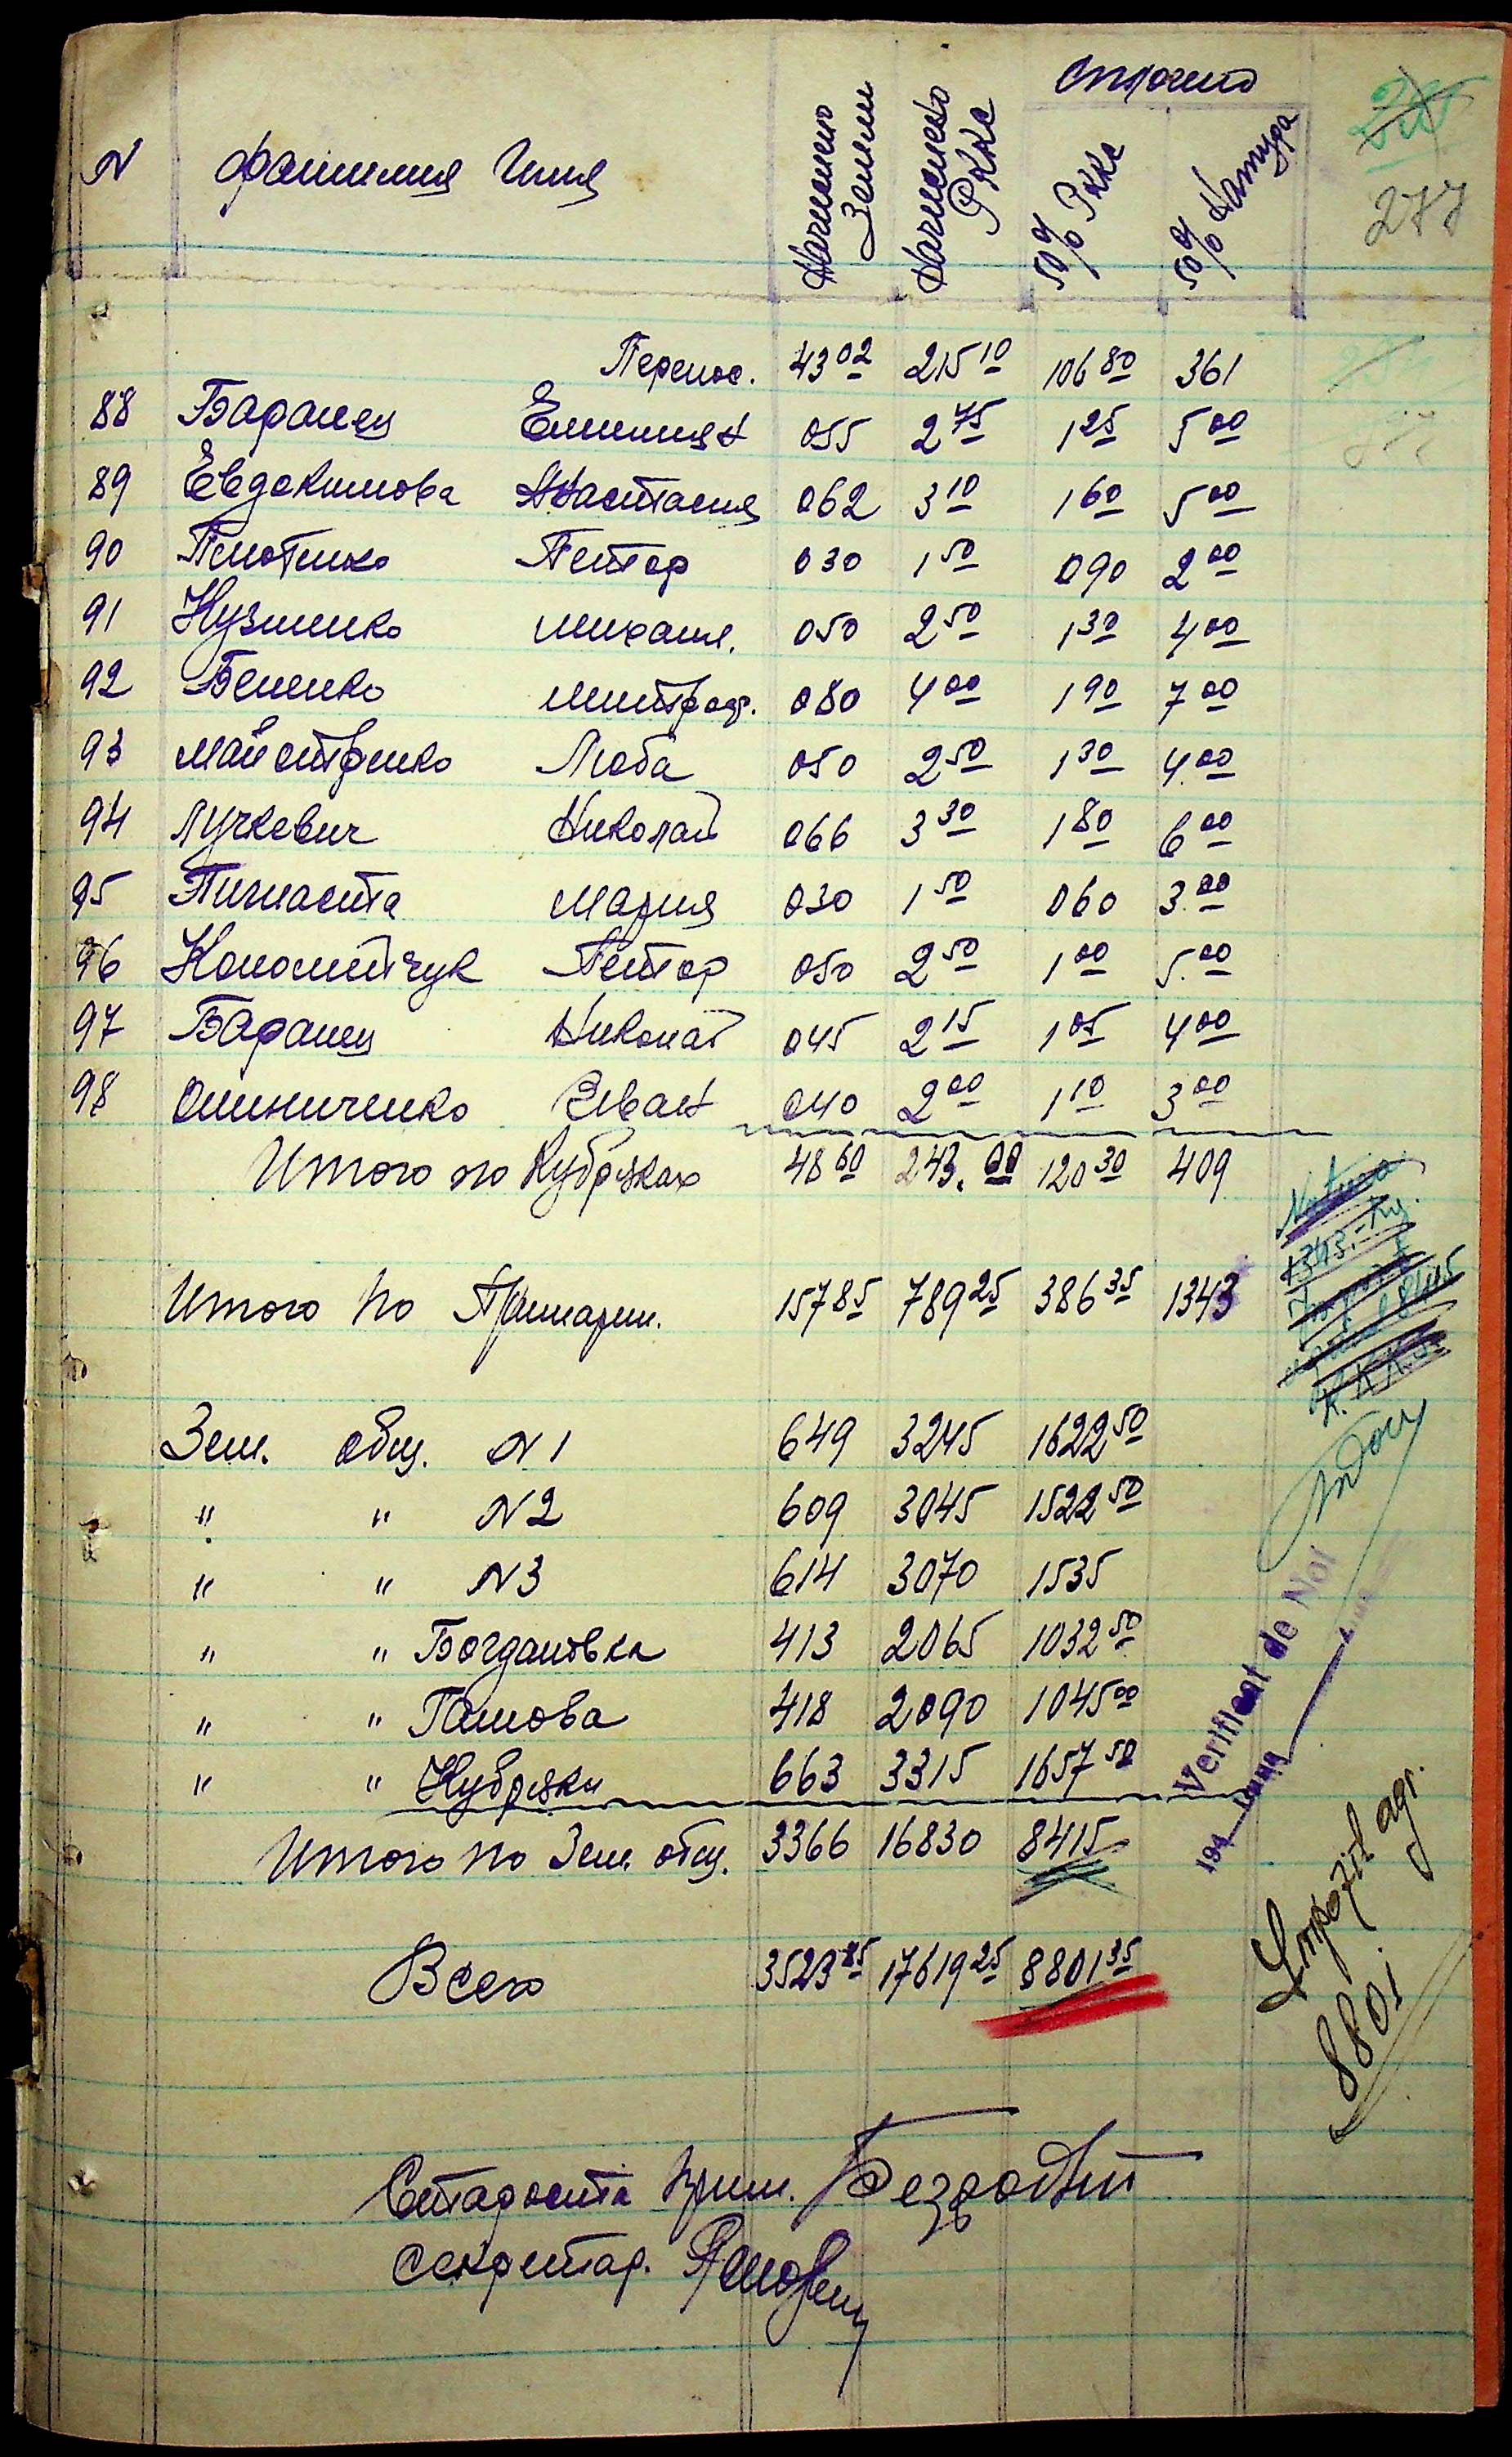 Оплочено
277
N Фамилия Имя Начислено Земли Начислено РККС 50% РККС 50% Натура
Перенос. 43 02 215 10 106 80 361
88 Баранец Емилиян 055 2 75 1 25 5 00
89 Евдокимова Анастасия 062 3 10 1 60 5 00
90 Петор 030 1 50 090 2 00
91 Кузменко михаил. 050 2 50 1 30 4 00
92 Беленко митрофр. 080 4 00 1 90 7 00
93 майстренко Люба 050 2 50 1 30 4 00
94 Лучкевич Николай 066 3 30 1 80 6 00
95 Мария 030 1 50 060 3 00
96 Коломийчук Петор 050 2 50 1 00 5 00
97 Баранец Николай 045 2 15 1 05 4 00
98 Олиниченко Иван 040 2 00 1 10 3 00
Итого по Кубряках 48 60 243. 00 120 30 409
Natura
1343.- Kg.
Итого по Примарии. 157 85 789 25 386 35 1343
8415
R.K.K.S.
Зем. общ. N 1 649 3245 1622 50
" " N 2 609 3045 1522 50
" " N 3 614 3070 1535
" " Богдановка 413 2065 1032 50
" " Памова 418 2090 1045 00
" " Кубряки 663 3315 1657 50
Итого по Зем. общ. 3366 16830 8415
Verificat de Noi
194
Impozit agr.
8801
Всего 3523 85 17619 25 8801 35
Староста прим. Безродний
Секретар.